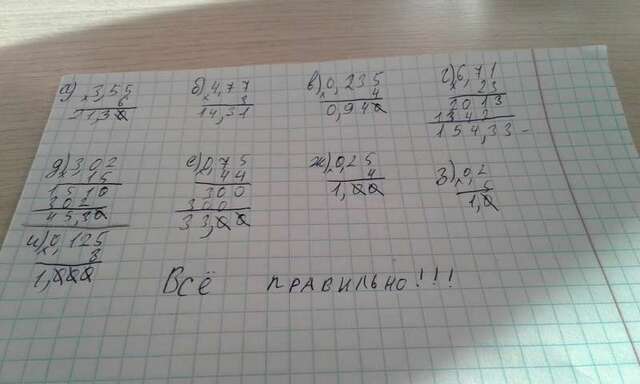 а) 3,55 б) 4,77 в) 0,235 г) 6,71
× 6 × 3 × 4 × 23
21,30 14,31 0,940 2013
1342
154,33
д) 3,02 е) 0,75 ж) 0,25 з) 0,2
× 15 × 44 × 4 × 5
1510 300 1,00 1,0
302 300
45,30 33,00
и) 0,125
× 8
1,000
Всё правильно!!!